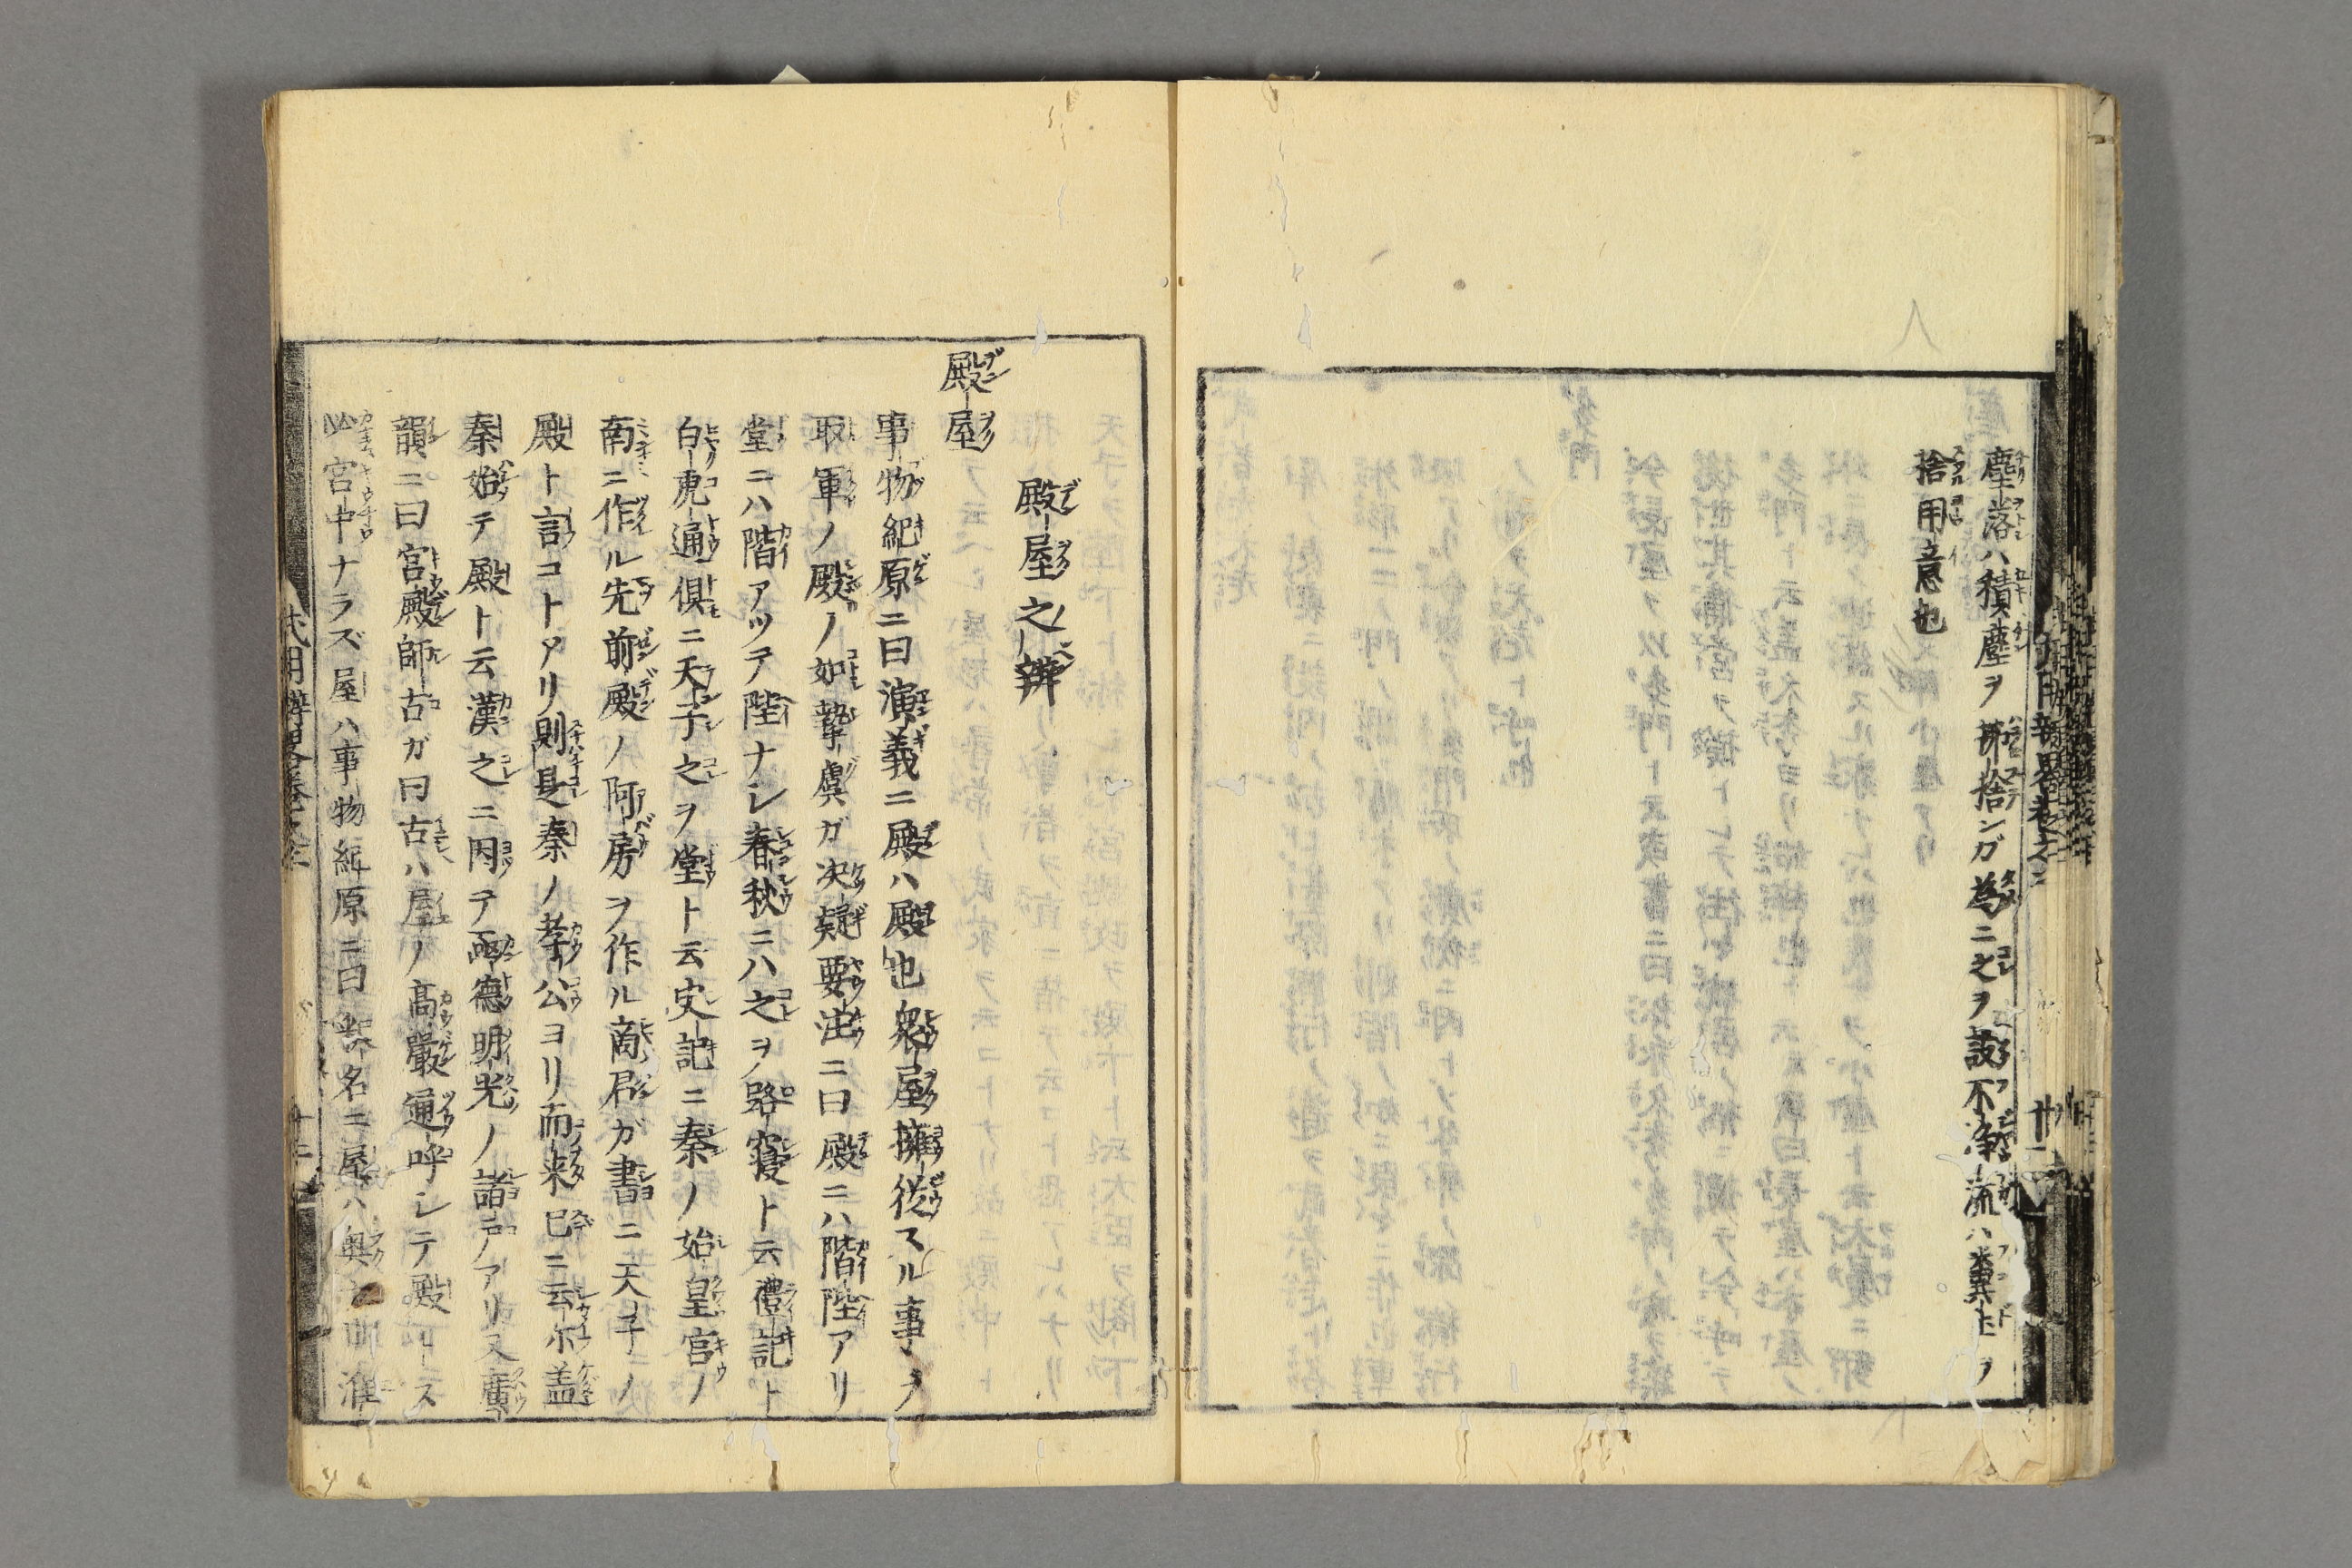 塵落ハ積塵ヲ拂捨ンガ為ニ之ヲ設不浄流ハ糞土ヲ
捨用意也
殿屋之辨
殿屋
事物紀原ニ曰演義ニ殿ハ殿也衆屋擁従スル事ヲ
取軍ノ殿ノ如摯虞ガ决疑要注ニ曰殿ニハ階陛アリ
堂ニハ階アツテ陛ナシ春秋ニハ之ヲ路寝ト云禮記ト
白虎通倶ニ天子之ヲ堂ト云史記ニ秦ノ始皇宮ノ
南ニ作ル先前殿ノ阿房ヲ作ル商君ガ書ニ天子ノ
殿ト言コトアリ則是秦ノ孝公ヨリ而来已ニ云尓盖
秦始テ殿ト云漢之ニ因テ両德明光ノ諸アリ又廣
韻ニ曰宮殿師古ガ曰古ハ屋ノ高嚴通呼シテ殿ス
必宮中ナラズ屋ハ事物紀原ニ曰釈名ニ屋ハ奥